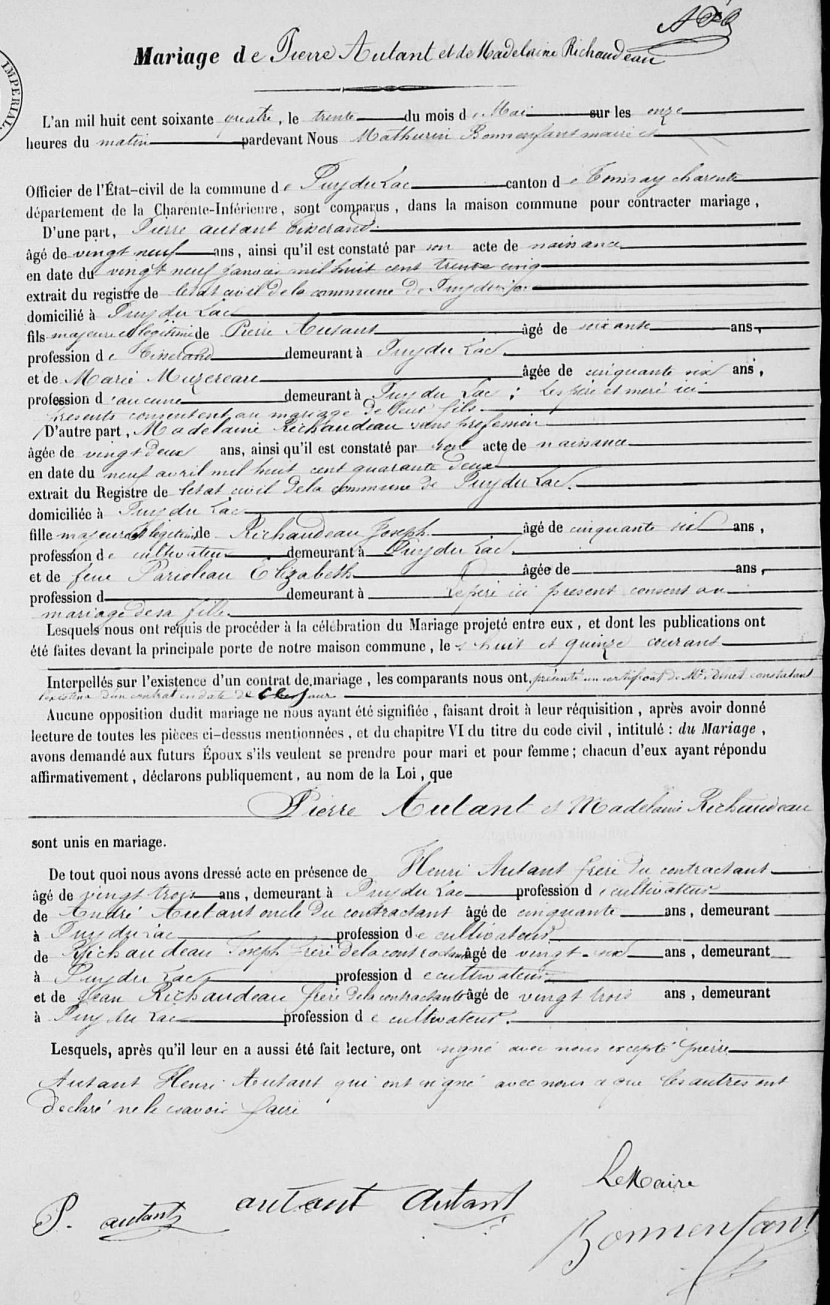 IMPERIAL
Mariage de Pierre Autant et de Madelaine Richaudeau
L'an mil huit cent soixante quatre, le trente du mois de Mai sur les onze
heures du matin pardevant Nous Mathurin Bonnenfant maire et
Officier de l'État-civil de la commune de Puy du Lac canton de Tonnay charente
département de la Charente-Inférieure, sont comparus, dans la maison commune pour contracter mariage,
D'une part, Pierre autant tisserand
âgé de vingt neuf ans, ainsi qu'il est constaté par son acte de naissance
en date du vingt neuf janvier mil huit cent trente cinq
extrait du registre de letat civil de la commune de Puy du Lac
domicilié à Puy du Lac
fils majeur et légitime de Pierre Autant âgé de soixante ans,
profession de tisserand demeurant à Puy du Lac
et de Marie Muzereau âgée de cinquante six ans,
profession d'aucune demeurant à Puy du Lac ; Les père et mere ici
presents consentent au mariage de leur fils
D'autre part, Madelaine Richaudeau sans profession
âgée de vingt deux ans, ainsi qu'il est constaté par son acte de naissance
en date du neuf avril mil huit cent quarante deux
extrait du Registre de letat civil de la commune de Puy du Lac.
domiciliée à Puy du Lac
fille majeure et légitime de Richaudeau Joseph âgé de cinquante six ans,
profession de cultivateur demeurant à Puy du Lac
et de feue Elizabeth âgée de ans,
profession d demeurant à Le père ici present consent au
mariage de sa fille
Lesquels nous ont requis de procéder à la célébration du Mariage projeté entre eux, et dont les publications ont
été faites devant la principale porte de notre maison commune, les huit et quinze courant
Interpellés sur l'existence d'un contrat de mariage, les comparants nous ont, présenté un certificat de Me constatant
l'existence d'un contrat en date de jour
Aucune opposition dudit mariage ne nous ayant été signifiée, faisant droit à leur réquisition, après avoir donné
lecture de toutes les pièces ci-dessus mentionnées, et du chapitre VI du titre du code civil, intitulé : du Mariage,
avons demandé aux futurs Époux s'ils veulent se prendre pour mari et pour femme; chacun d'eux ayant répondu
affirmativement, déclarons publiquement, au nom de la Loi, que
Pierre Autant et Madelaine Richaudeau
sont unis en mariage.
De tout quoi nous avons dressé acte en présence de Henri Autant frere du contractant
âgé de vingt trois ans, demeurant à Puy du Lac profession de cultivateur
de André Autant oncle du contractant âgé de cinquante ans, demeurant
à Puy du Lac profession de cultivateur
de Richaudeau Joseph frere de la contractante âgé de vingt six ans, demeurant
à Puy du Lac profession de cultivateur
et de Jean Richaudeau frere de la contractante âgé de vingt trois ans, demeurant
à Puy du Lac profession de cultivateur.
Lesquels, après qu'il leur en a aussi été fait lecture, ont signé avec nous excepté pierre
Autant Henri Autant qui ont signé avec nous que les autres ont
declaré ne le savoir faire
Le Maire
P. autant autant Autant
Bonnenfant